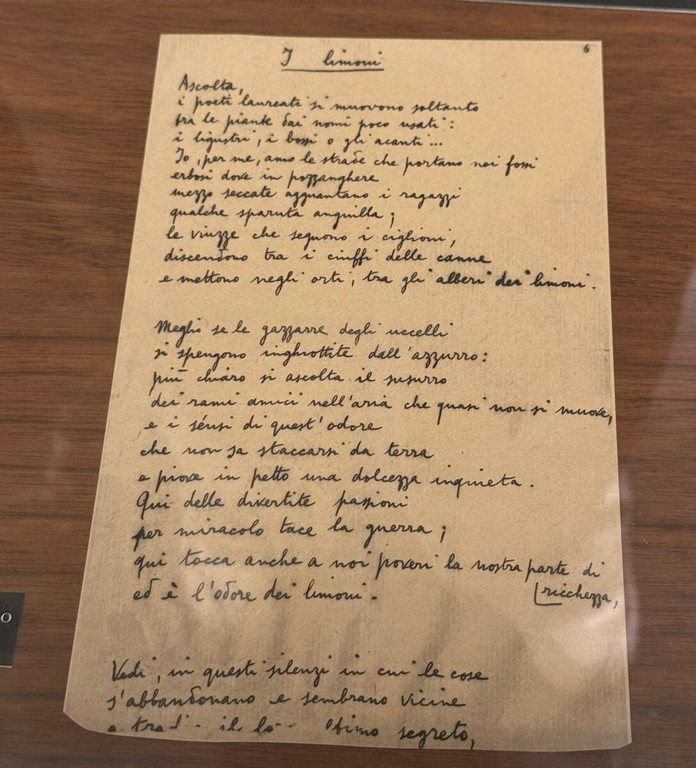 6
I limoni
Ascolta,
i poeti laureati si muovono soltanto
fra le piante dai nomi poco usati:
i ligustri, i bossi o gli acanti...
Io, per me, amo le strade che portano nei fossi
erbosi dove in pozzanghere
mezzo seccate agguantano i ragazzi
qualche sparuta anguilla;
le viuzze che seguono i ciglioni,
discendono tra i ciuffi delle canne
e mettono negli orti, tra gli alberi dei limoni.
Meglio se le gazzarre degli uccelli
si spengono inghiottite dall'azzurro:
più chiaro si ascolta il susurro
dei rami amici nell'aria che quasi non si muove,
e i sénsi di quest'odore
che non sa staccarsi da terra
e piove in petto una dolcezza inquieta.
Qui delle divertite passioni
per miracolo tace la guerra;
qui tocca anche a noi poveri la nostra parte di
ricchezza,
ed è l'odore dei limoni.
Vedi, in questi silenzi in cui le cose
s'abbandonano e sembrano vicine
il segreto,
O